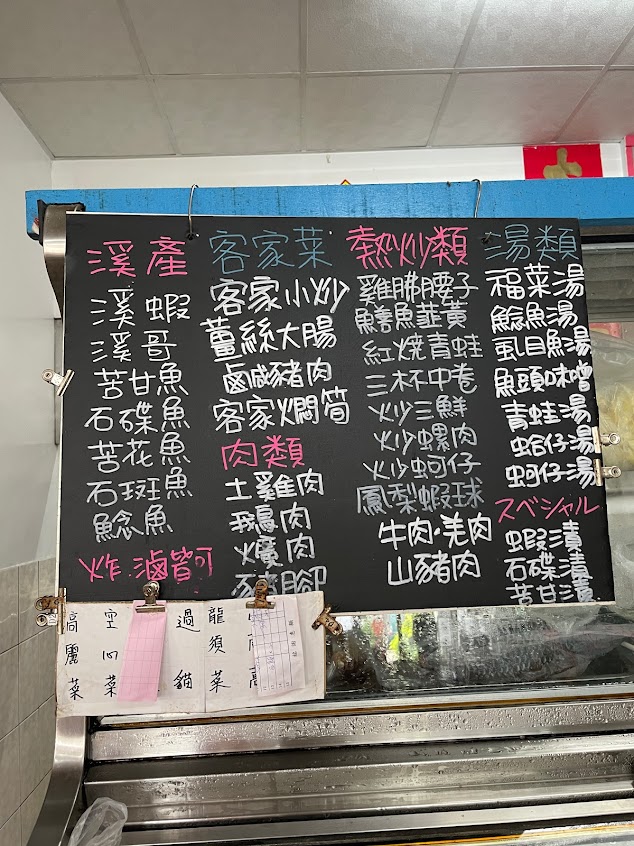 溪產
溪蝦
溪哥
苦甘魚
石碟魚
苦花魚
石斑魚
鯰魚
炸.滷皆可
客家菜
客家小炒
薑絲大腸
鹹豬肉
客家燜筍
肉類
土雞肉
鵝肉
豬腳
熱炒類
雞腰子
鱔魚韮黃
紅燒青蛙
三杯中卷
炒三鮮
炒螺肉
炒蚵仔
鳳梨蝦球
牛肉.羌肉
山豬肉
湯類
福菜湯
鯰魚湯
虱目魚湯
魚頭味噌
青蛙湯
蛤仔湯
蚵仔湯
スペシャル
蝦漬
石碟漬
苦甘漬
高麗菜
空心菜
過貓
龍須菜